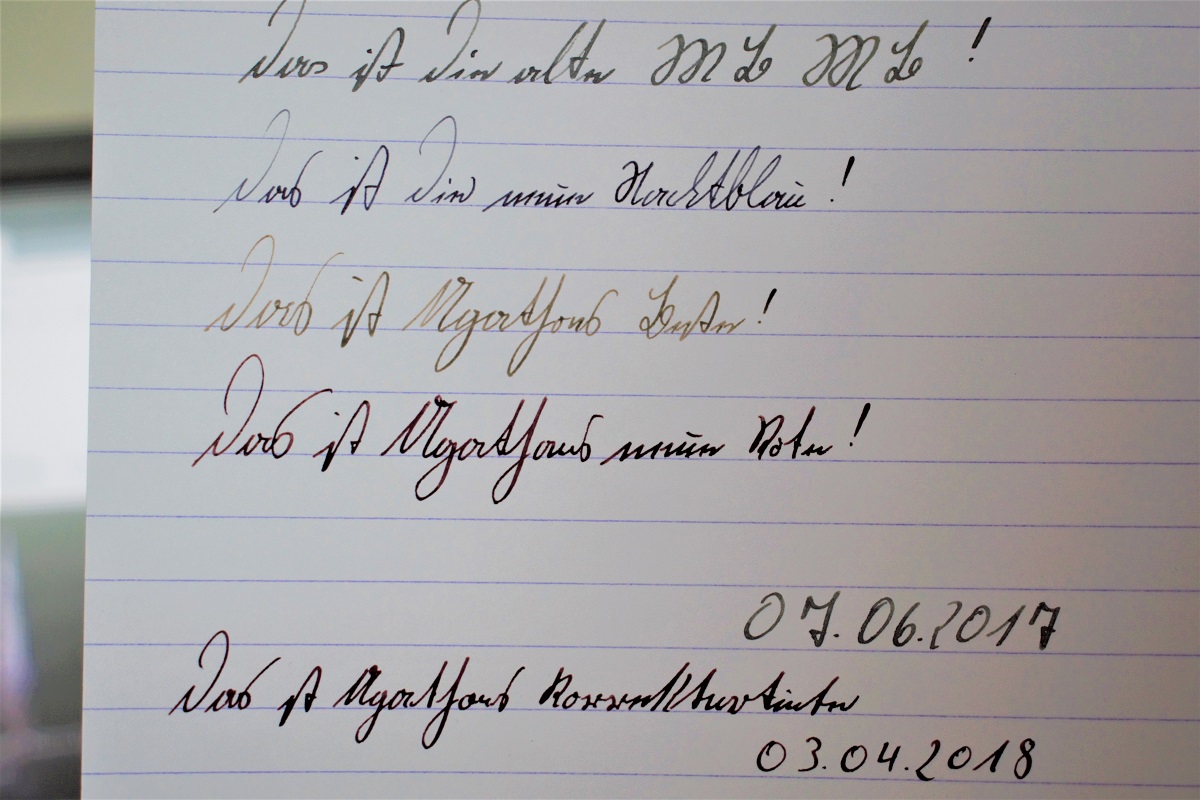 Das ist die alte MB MB !
Das ist die neue Nachtblau!
Das ist Agathons Beste!
Das ist Agathons neue Rote!
07.06.2017
Das ist Agathons Korrekturtinte
03.04.2018